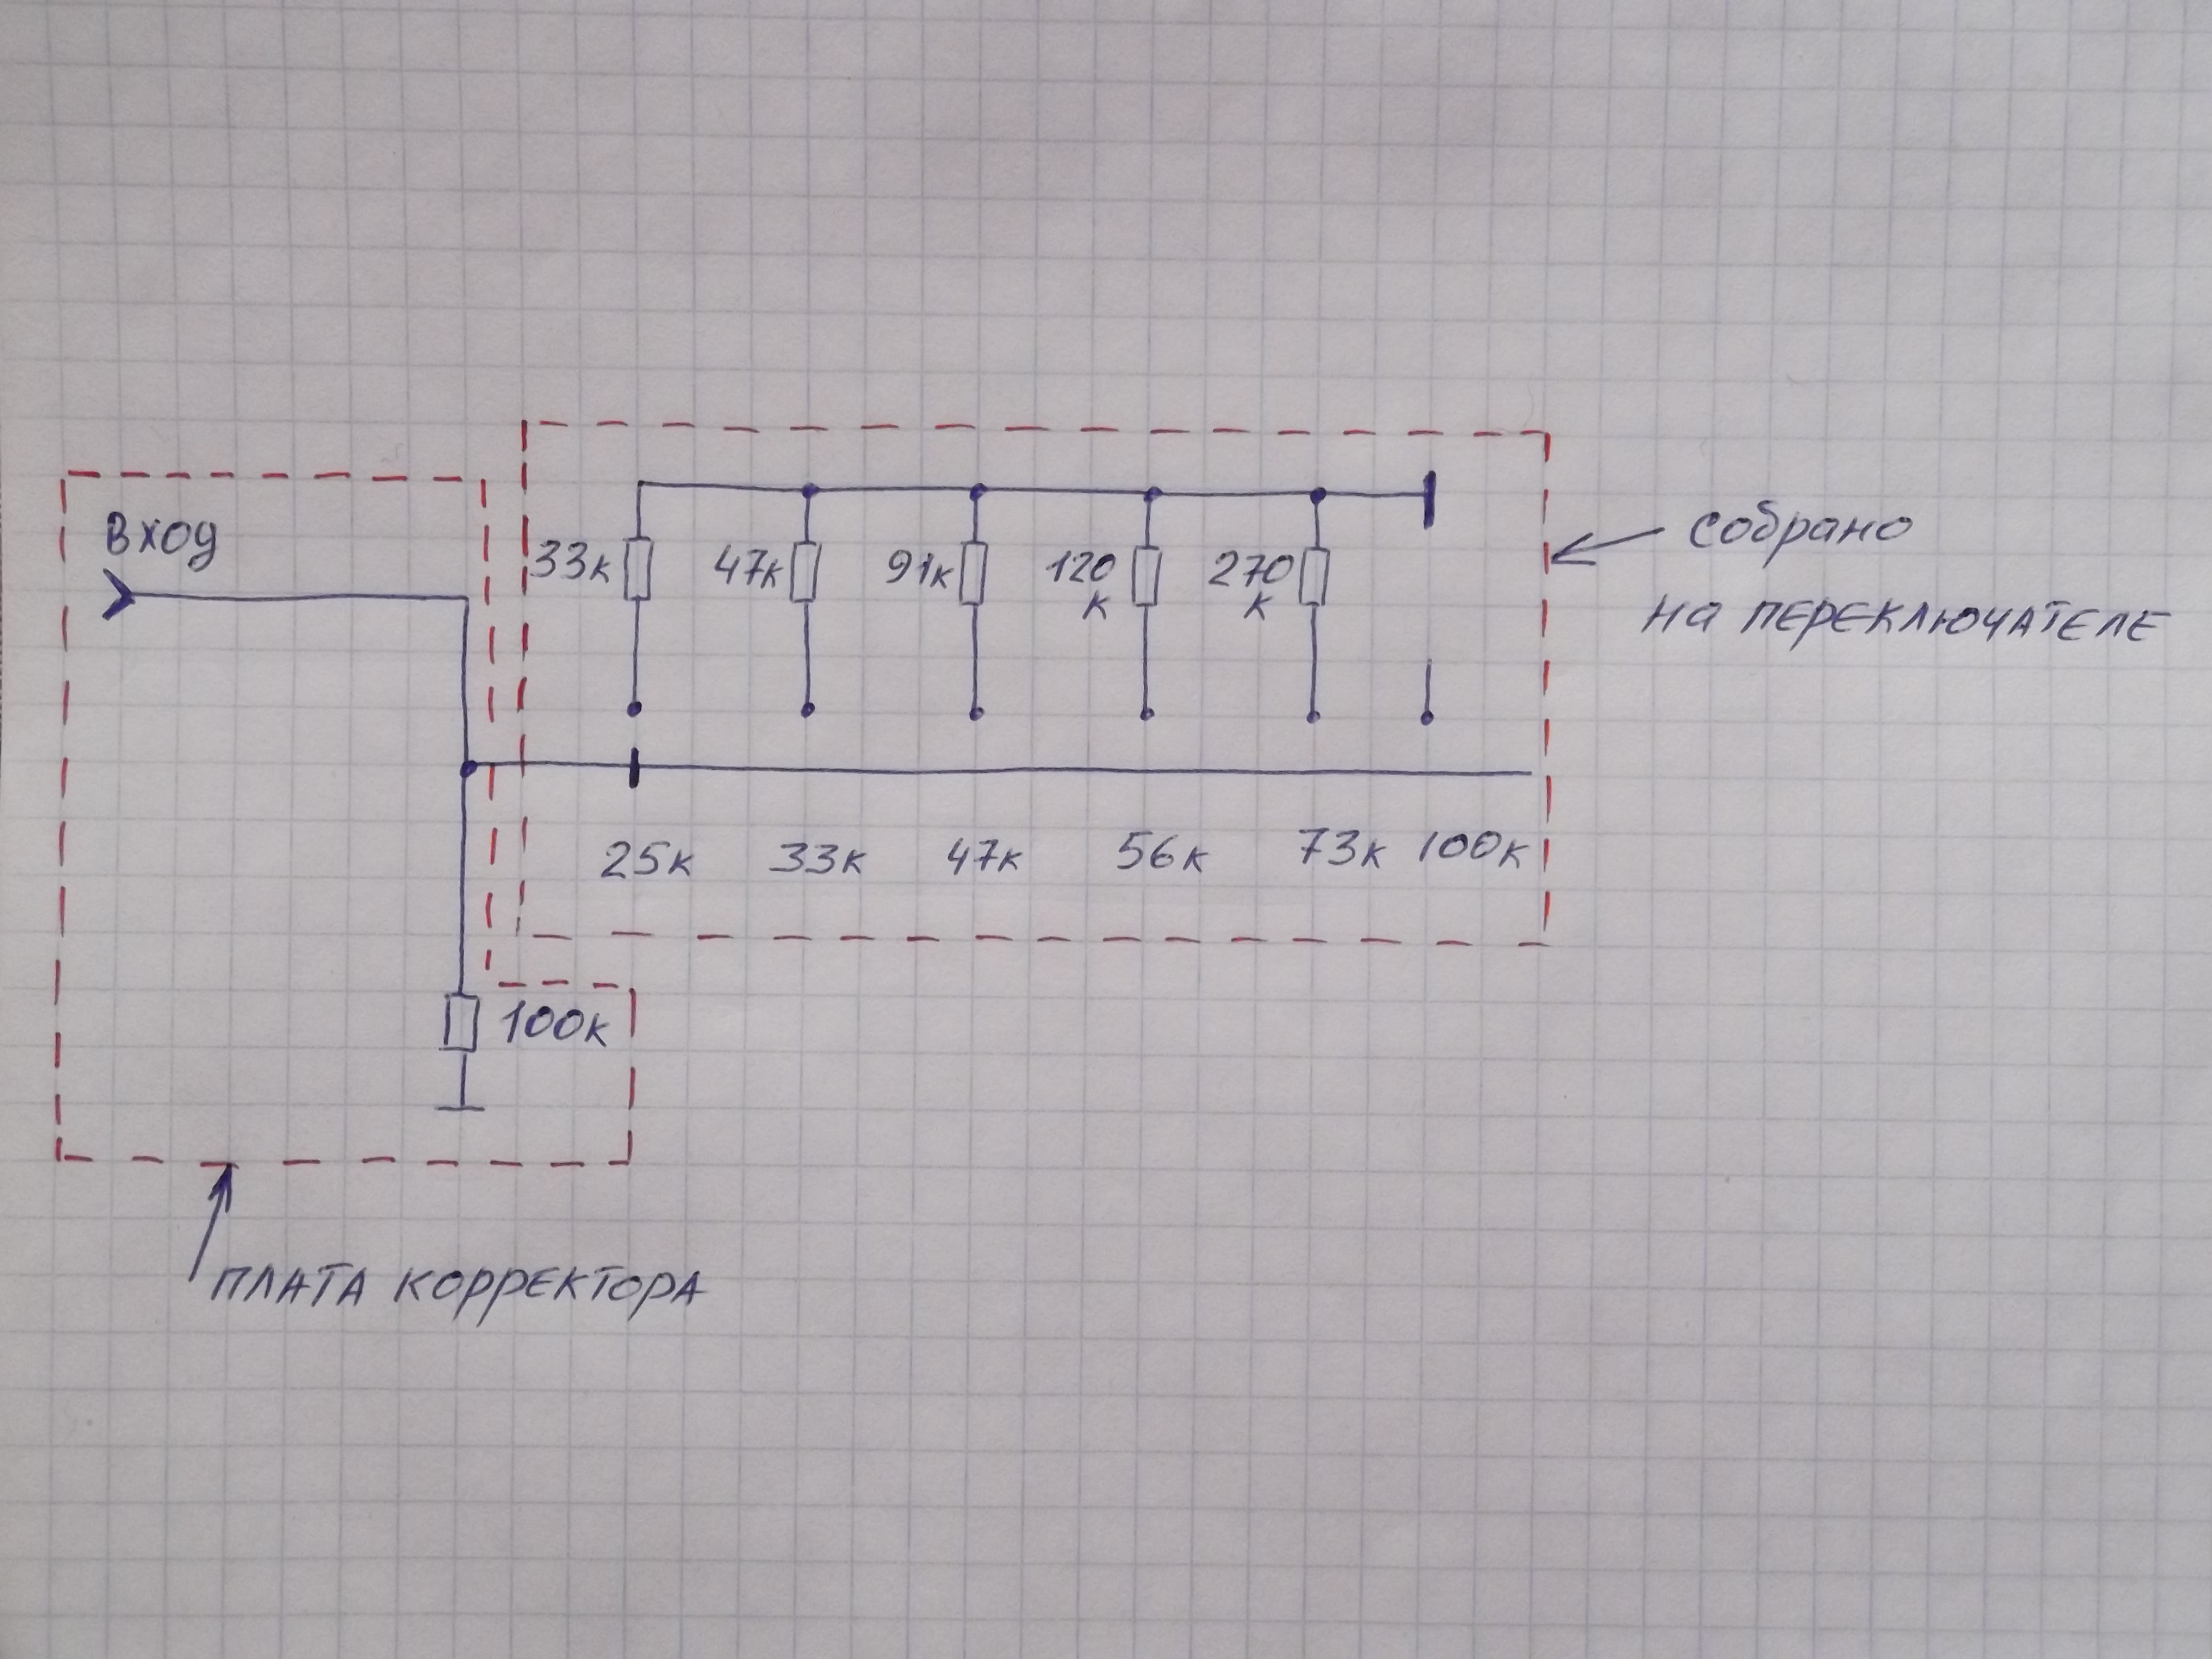 Вход
33к 47к 91к 120 к 270 к
собрано
на переключателе
25к 33к 47к 56к 73к 100к
100к
плата корректора